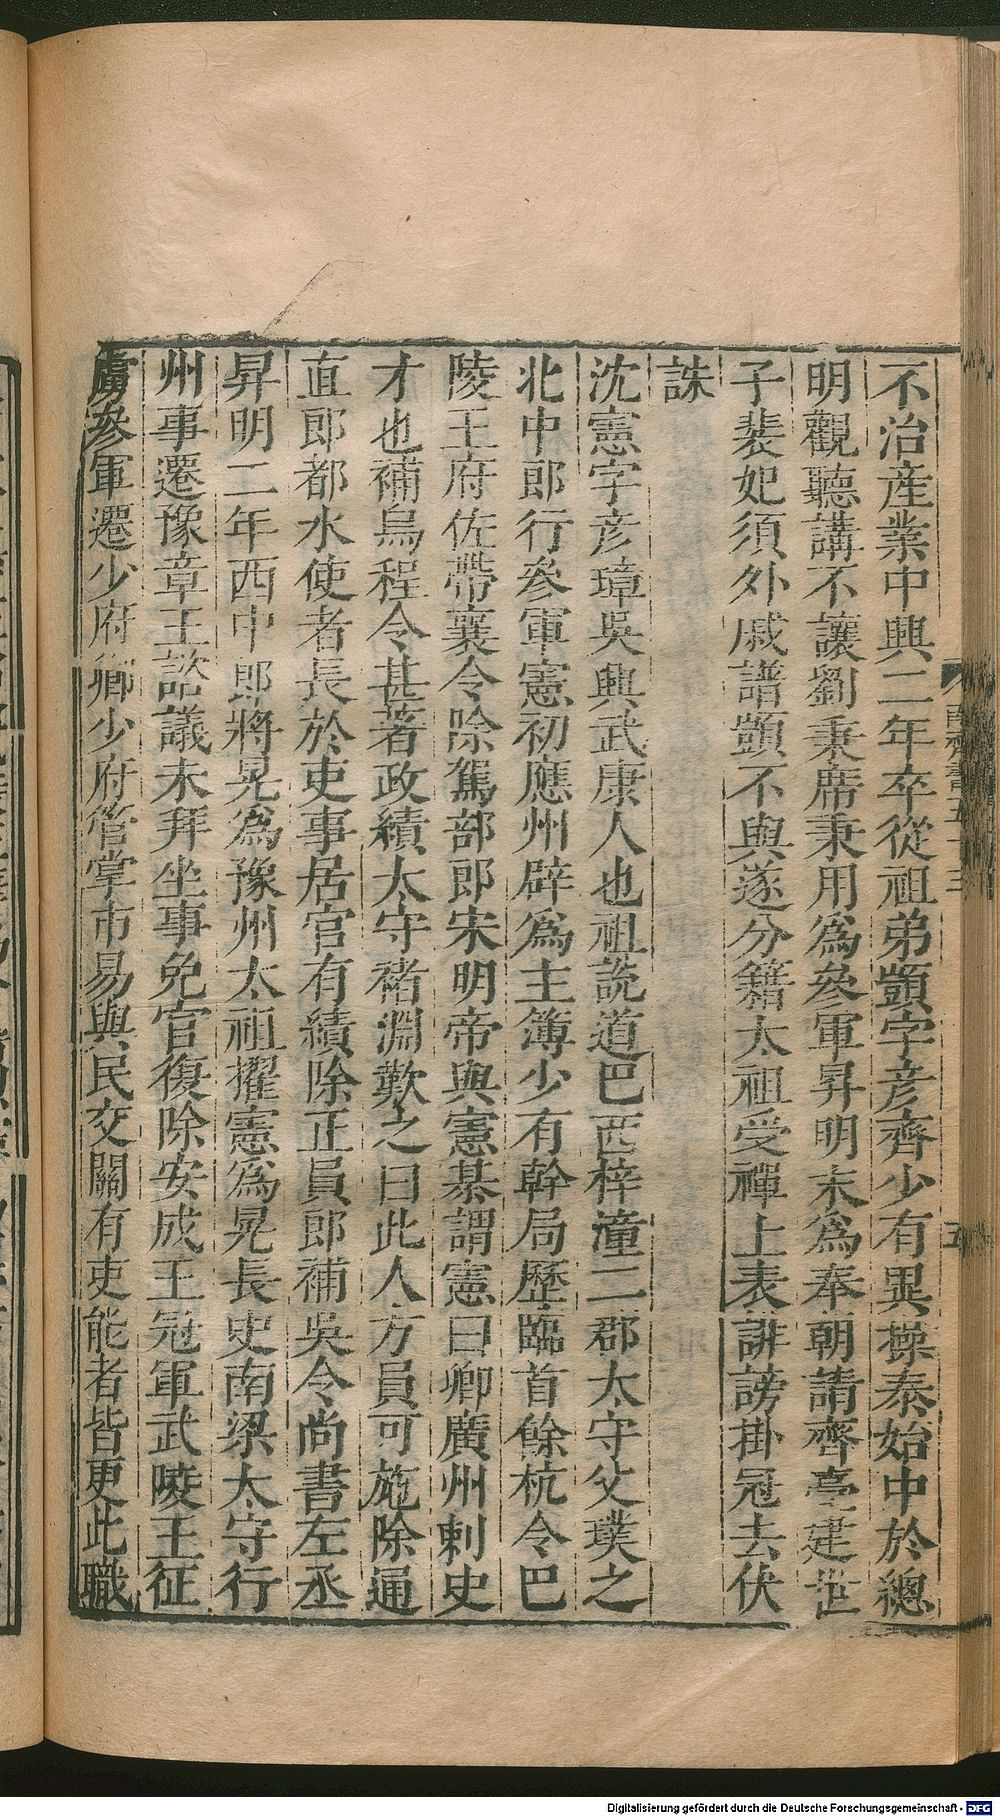 不治産業中興二年卒從祖弟顗字彦齊少有異操泰始中於總
明觀聽講不讓劉秉席秉用爲參軍昇明末爲奉朝請齊臺建世
子裴妃須外戚譜顗不與遂分籍太祖受禪上表誹謗掛冠去伏
誅
沈憲字彦璋吳興武康人也祖說道巴西梓潼二郡太守父璞之
北中郎行參軍憲初應州辟爲主簿少有幹局歷臨首餘杭令巴
陵王府佐帶襄令除駕部郎宋明帝與憲棊謂憲曰卿廣州刺史
才也補烏程令甚著政績太守褚淵歎之曰此人方員可施除通
直郎都水使者長於吏事居官有績除正員郎補吳令尚書左丞
昇明二年西中郎將晃爲豫州太祖擢憲爲晃長史南梁太守行
州事遷豫章王諮議未拜坐事免官復除安成王冠軍武陵王征
虜參軍遷少府卿少府管掌市易與民交關有吏能者皆更此職
南齊書五十三
五
Digitalisierung gefördert durch die Deutsche Forschungsgemeinschaft - DFG